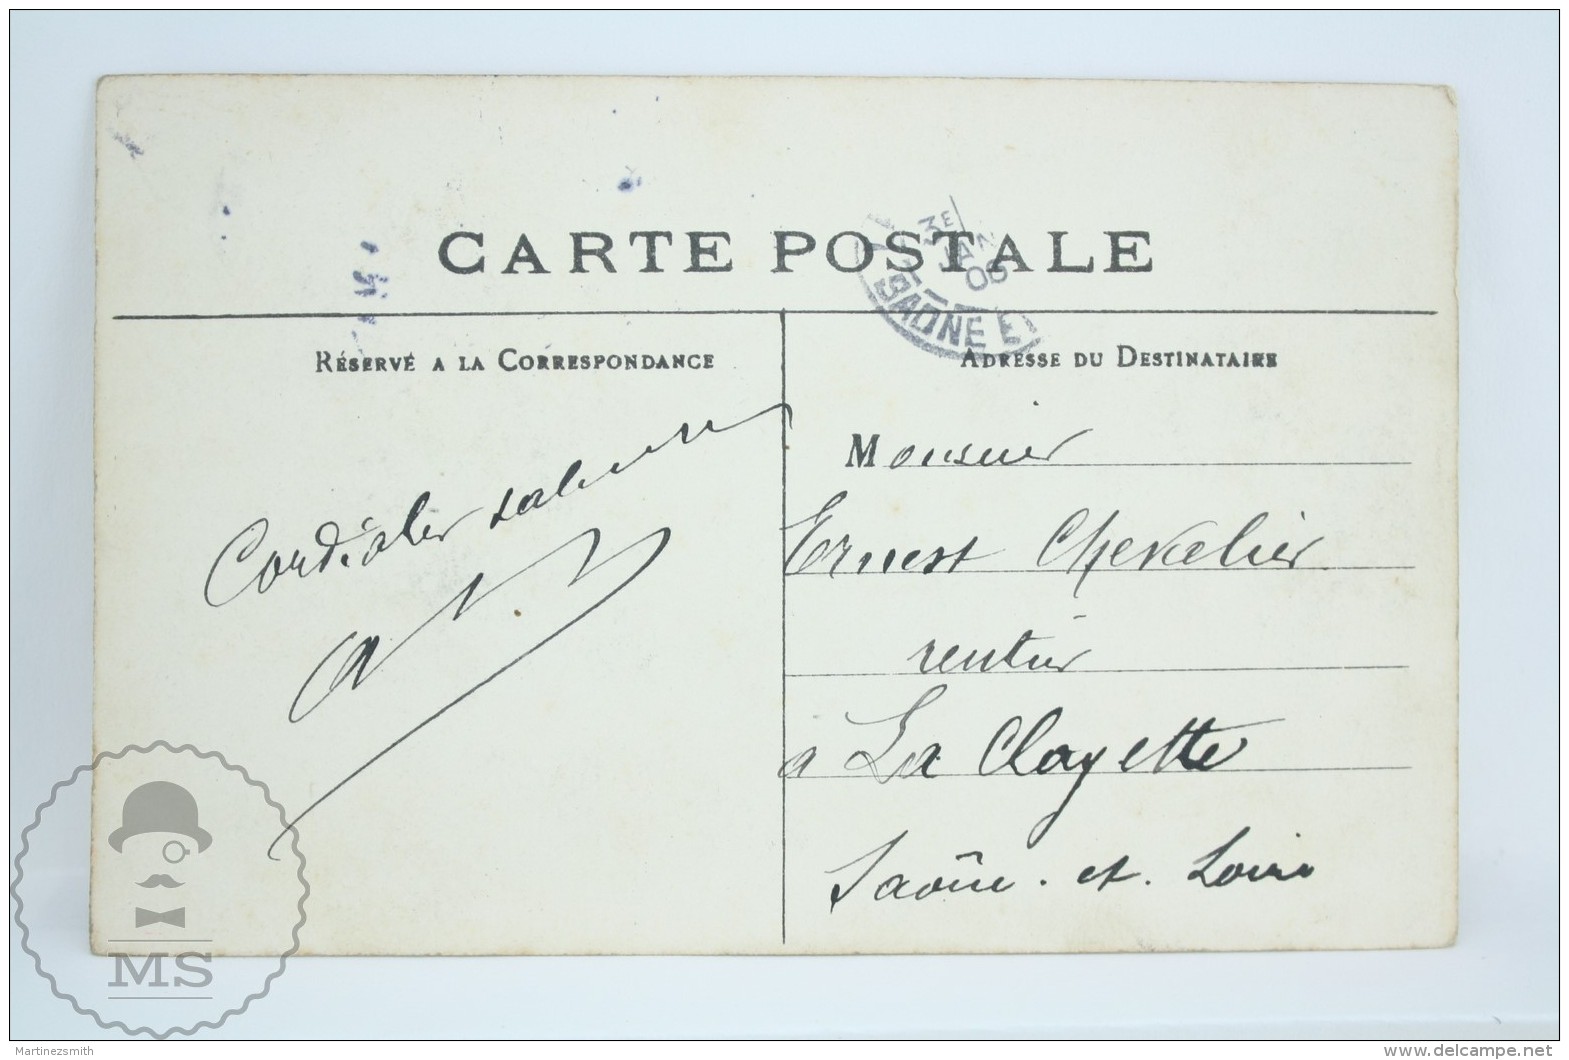 CARTE POSTALE
3E
JAN
06
SAONE E
RÉSERVÉ A LA CORRESPONDANCE
ADRESSE DU DESTINATAIRE
Cordiales
Monsieur
Ernest Chevalier
rentier
a La Clayette
Saône . et . Loire
MS
Martinezsmith
www.delcampe.net